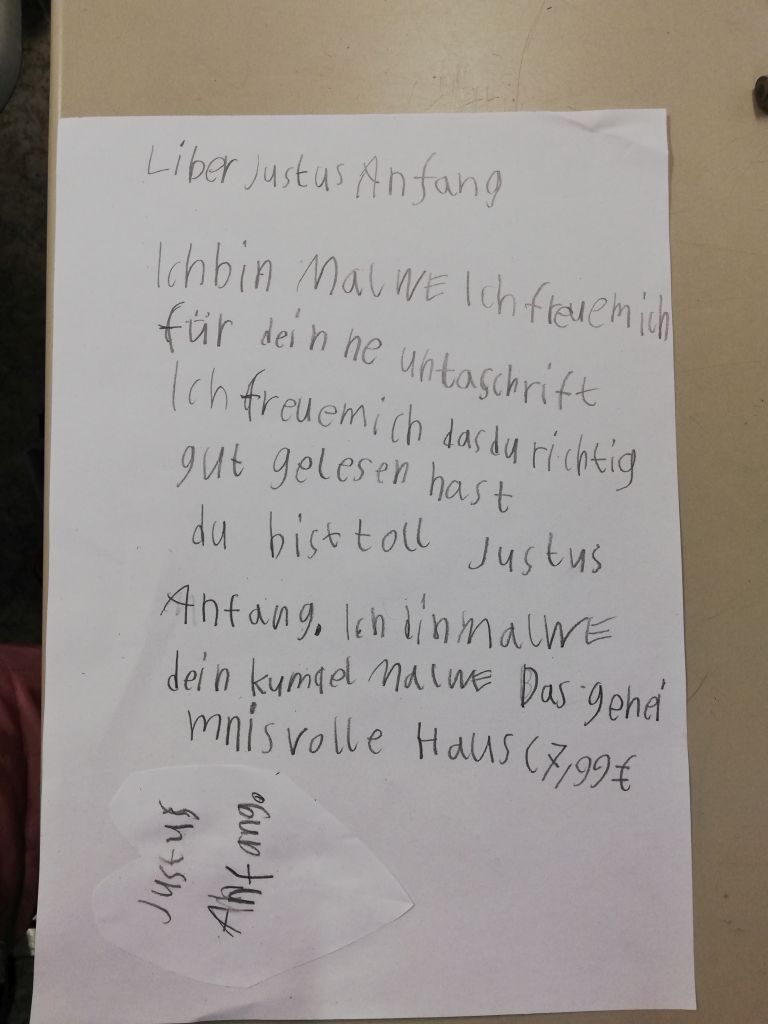 Liber Justus Anfang
Ich bin MalWE Ich freue mich
für dein ne untaschrift
Ich freue mich das du richtig
gut gelesen hast
du bist toll Justus
Anfang. Ich dinmalWE
dein kumqel malWE Das gehei
mnisvolle Haus (7,99€
Justus
Anfang.